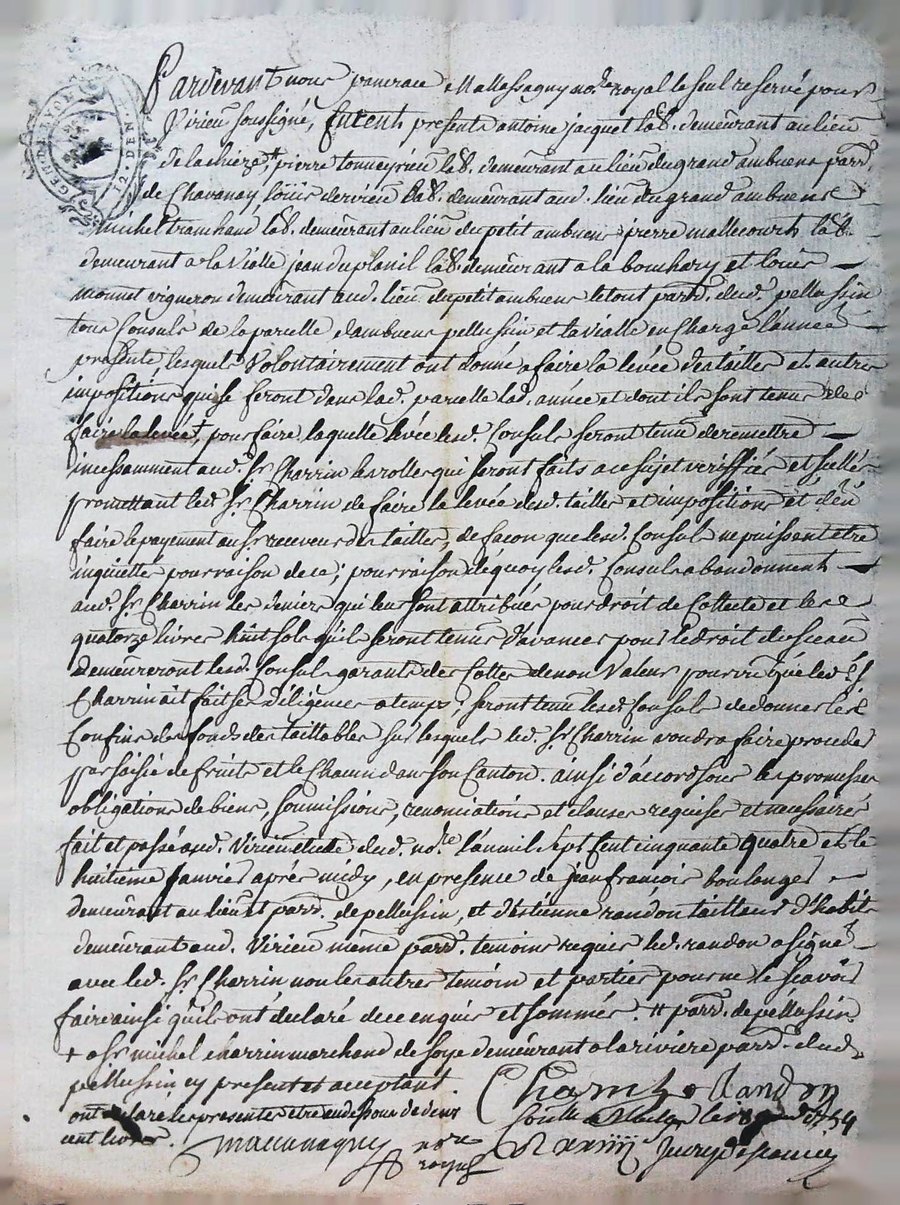 GEN. LYON
DEN. UI
Pardevant nous pancrace Mallassagny no.re royal le seul reservé pour
Virieu soussigné, furent presents antoine jacquet lab. demeurant au lieu
de lachieze ++, pierre lab. demeurant au lieu du grand ambuens parr.
de Chavanay, loüis dervieu lab. demeurant aud. lieu du grand ambuens
michel tranchand lab. demeurant au lieu du petit ambuens pierre mallecourt lab.
demeurant a la Vialle jean duplanil lab. demeurant a la bouchary et loüis
monnet vigneron demeurant aud. lieu du petit ambuens le tout parr. dud. pellussin
tous Consuls de la parcelle dambuens pellussin et la vialle en Charge l'année
presente, lesquels Volontairement ont donné a faire la levée des tailles et autres
impositions qui se feront dans lad. parcelle lad. année et dont ils sont tenus de
faire la levée +, pour faire laquelle levée lesd. Consuls seront tenu de remettre
incessamment aud. Sr. Charrin les rolles qui seront faits a ce sujet veriffiés et scellés
promettant led. Sr. Charrin de faire la levée desd. tailles et impositions et d'en
faire le payement au Sr. receveur des tailles, de façon que lesd. Consuls ne puissent etre
inquiettés pour raison de ce; pour raison dequoy lesd. Consuls abandonnent
aud. Sr. Charrin les deniers qui leur sont attribués pour droit de Collecte et les
quatorze livres huit sols qu'il seront tenus d'avancer pour le droit de sceau
Demeureront lesd. Consuls garants des Cottes de non Valeur pourvu que led. Sr.
Charrin ait fait ses diligences a temps; seront tenu lesd. Consuls de donner les
Confins des fonds des taillables sur lesquels led. Sr. Charrin voudra faire proceder
par saisie de fruits et le dans son Canton. ainsi d'accord sous les promesses
obligations de biens, soumissions, renonciations et clauses requises et necessaires
fait et passé aud. Virieu etude dud. no.re l'an mil sept cent cinquante quatre et le
huitième janvier après midy, en presence de jean françois boulanger
demeurant au lieu et parr. de pellussin, et d'estienne randon tailleur d'habits
demeurant aud. Virieu même parr. temoins requis led. randon a signé
avec led. Sr. Charrin non les autres temoin et parties pour ne le sçavoir
faire ainsi qu'ils ont declaré de ce enquis et sommés. ++ parr. de pellussin
+ a Sr. michel charrin marchand de soye demeurant a la riviere parr. dud.
pellussin cy present et acceptant
Charrin Randon
ont declaré les presentes etre au dessous de deux
cent livres.
no.re
royal